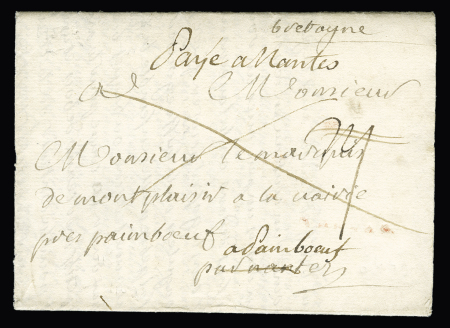 bretagne
Payé a Nantes
A Monsieur
Monsieur le marquis
de montplaisir a la
pres paimboeuf
a Paimboeuf
par nantes